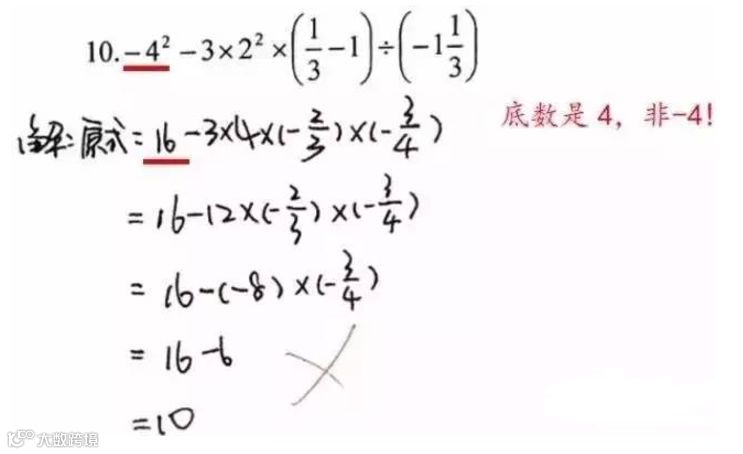 10. -4² - 3×2²×(1/3 - 1)÷(-1 1/3)
解:原式=16-3×4×(-2/3)×(-3/4)
底数是 4，非-4!
=16-12×(-2/3)×(-3/4)
=16-(-8)×(-3/4)
=16-6
=10
大数跨境